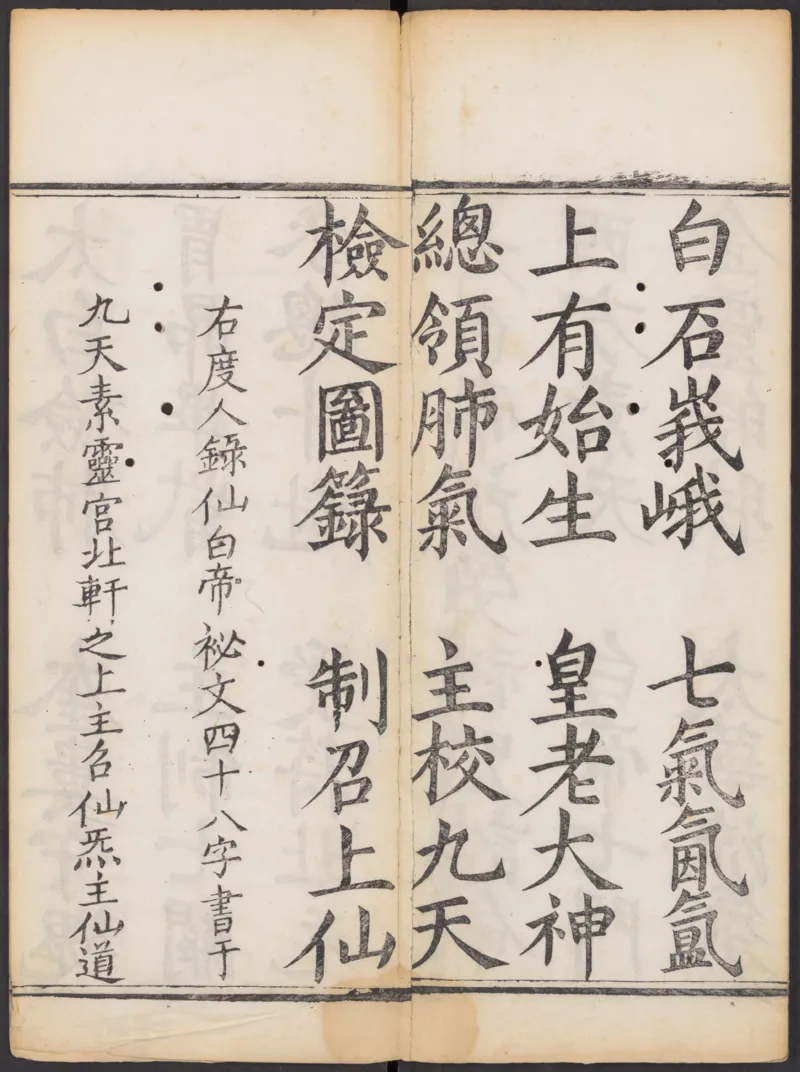 白石峩峨 七氣氤氳
上有始生 皇老大神
總領肺氣 主校九天
檢定圖籙 制召上仙
右度人錄仙白帝祕文四十八字書于
九天素靈宮北軒之上主召仙炁主仙道